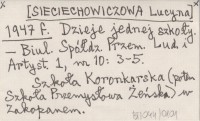 [SIECIECHOWICZOWA Lucyna]
1947 r. Dzieje jednej szkoły.
— Biul. Spółdz. Przem. Lud. i
Artyst. 1, nr 10: 3-5.
Szkoła Koronkarska (potem
Szkoła Przemysłowa Żeńska) w
Zakopanem.